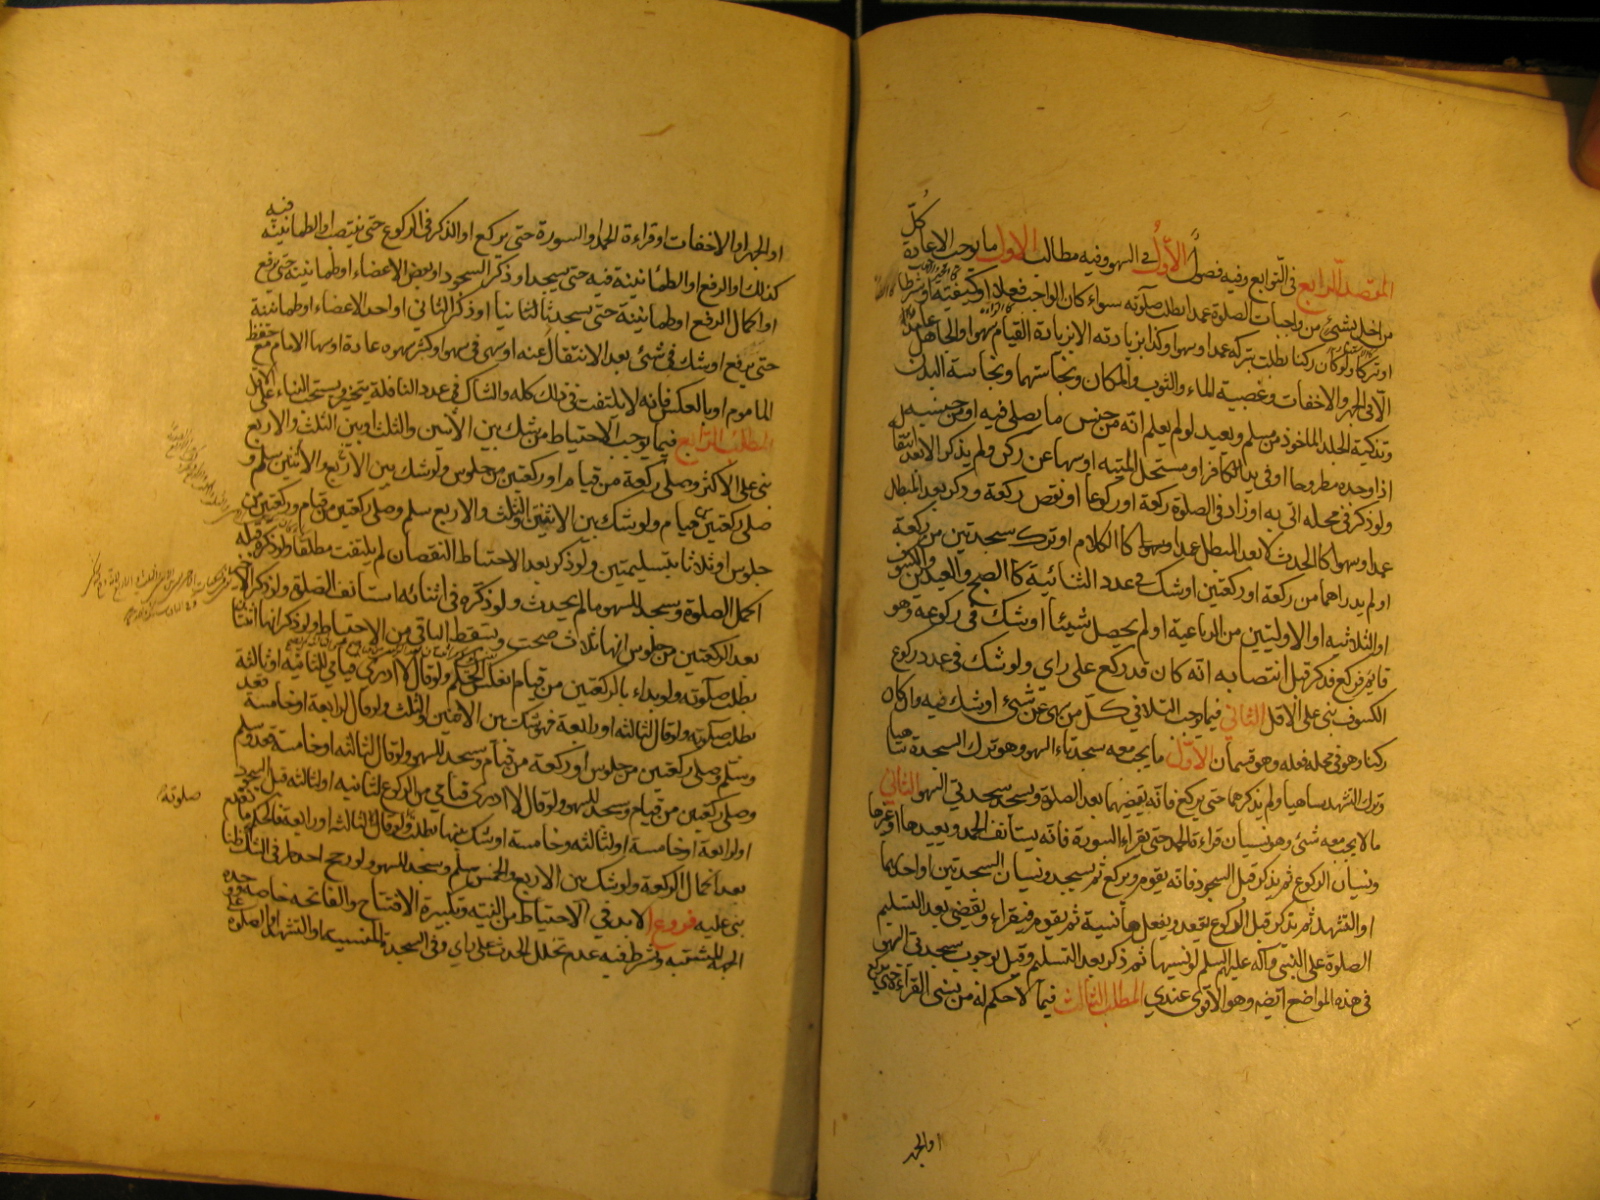 المقصد الرابع في التوابع وفيه فصول الأول في السهو وفيه مطالب الاول ما يوجب الاعادة كل
من اخل بشئ من واجبات الصلوة عمدا بطلت صلوته سواء كان الواجب فعلا او كيفية او شرطا
او تركا ولو كان ركنا بطلت بتركه عمدا وسهوا وكذا بزيادته الا زيادة القيام سهوا والجاهل عامد
الا في الجهر والاخفات وغصبية الماء والثوب والمكان ونجاستهما ونجاسة البدن
وتذكية الجلد الماخوذ من مسلم ويعيد لو لم يعلم انه من جنس ما يصلى فيه او من جنسه
اذا وجده مطروحا او في يد كافر او مستحل الميتة او سها عن ركن ولم يذكر الا بعد انتقاله
ولو ذكر في محله اتى به او زاد في الصلوة ركعة او ركوعا او نقص ركعة وذكر بعد المبطل
عمدا وسهوا كالحدث لا بعد المبطل عمدا كالكلام او ترك سجدتين من ركعة
او لم يدر اهما من ركعة او ركعتين او شك في عدد الثنائية كالصبح والعيدين والكسوف
او الثلاثية او الاوليتين من الرباعية او لم يحصل شيئا او شك في ركوعه وهو
قائم فركع فذكر قبل انتصابه انه كان قد ركع على راي ولو شك في عدد ركوع
الكسوف بنى على الاقل الثاني فيما يوجب التلافي كل من سهى عن شئ او شك فيه وان كان
ركنا وهو في محله فعله وهو قسمان الاول ما يجب معه سجدتا السهو وهو ترك السجدة ساهيا
وترك التشهد ساهيا ولم يذكرهما حتى يركع فانه يقضيهما بعد الصلوة ويسجد سجدتي السهو الثاني
ما لا يجب معه شئ وهو نسيان قراءة الحمد حتى يقراء السورة فانه يستأنف الحمد ويعيدها او غيرها
ونسيان الركوع ثم يذكر قبل السجود فانه يقوم ويركع ثم يسجد ونسيان السجدتين او احديهما
او التشهد ثم يذكر قبل الركوع فيقعد ويفعل ما نسيه ثم يقوم فيقراء ويقضي بعد التسليم
الصلوة على النبي وآله عليهم السلم لو نسيها ثم ذكر بعد التسليم وقيل بوجوب سجدتي السهو
في هذه المواضع ايضا وهو الأقوى عندي المطلب الثالث فيما لا حكم له من نسي القراءة حتى يركع
او الجهر
او الجهر او الاخفات او قراءة الحمد او السورة حتى يركع او الذكر في الركوع حتى ينتصب او الطمانينة فيه
كذلك او الرفع او الطمانينة فيه حتى يسجد او ذكر السجود او بعض الاعضاء او طمانينته حتى يرفع
او اكمال الرفع او طمانينة حتى يسجد ثانيا او ذكر الثاني او احد الاعضاء او طمانينة
حتى يرفع او شك في شئ بعد الانتقال عنه او سهى في سهو او كثر سهوه عادة او سها الامام مع حفظ
الماموم او بالعكس فانه لا يلتفت في ذلك كله والشاك في عدد النافلة يتخير ويستحب البناء على الاقل
المطلب الرابع فيما يوجب الاحتياط من شك بين الاثنين والثلث او بين الثلث والاربع
بنى على الاكثر وصلى ركعة من قيام او ركعتين من جلوس ولو شك بين الاربع والاثنين سلم و
صلى ركعتين من قيام ولو شك بين الاثنين والثلث والاربع سلم وصلى ركعتين من قيام وركعتين من
جلوس او ثلاثا بتسليمتين ولو ذكر بعد الاحتياط النقصان لم يلتفت مطلقا ولو ذكره قبله
اكمل الصلوة وسجد للسهو ما لم يحدث ولو ذكره في اثنائه استانف الصلوة ولو ذكر الاخير
بعد الركعتين من جلوس انها ثلاث صحت وسقط الباقي من الاحتياط ولو ذكر انها اثنتان
بطلت صلوته ولو بداء بالركعتين من قيام انعكس الحكم ولو قال لا ادري قيامي لثانية او ثالثة
بطلت صلوته ولو قال لثالثة او رابعة فهو شك بين الاثنين والثلث ولو قال لرابعة او خامسة قعد
وسلم وصلى ركعتين من جلوس او ركعة من قيام وسجد للسهو ولو قال لثالثة او خامسة قعد وسلم
وصلى ركعتين من قيام وسجد للسهو ولو قال لا ادري قيامي من الركوع لثانية او لثالثة قبل السجود
او لرابعة او خامسة او لثالثة وخامسة او شك بينها بطلت ولو قال لثالثة او رابعة فالحكم ما تقدم
بعد اكمال الركعة ولو شك بين الاربع والخمس سلم وسجد للسهو ولو رجح احد طرفي الشك ظنا
بنى عليه فروع ا لابد في الاحتياط من النية وتكبيرة الافتتاح والفاتحة خاصة وحده
الجهة المشتبهة ويشترط فيه عدم تخلل الحدث على راي وفي السجدة المنسية او التشهد او الصلوة
صلوته